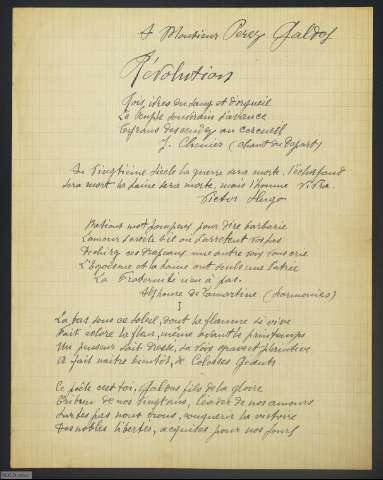 A Monsieur Perez Galdos
Révolution
Rois, ivres de sang et d'orgueil
Le Peuple souverain s'avance
Tyrans descendez au cercueil
J. Chenier (chant du Depart)
Au Vingtième siècle la guerre sera morte, l'échafaud
sera mort la haine sera morte, mais l'homme vivra.
Victor Hugo
Nations mot pompeux pour dire barbarie
L'amour s'arrête t'il où s'arrêtent vos pas
Déchirez ces drapeaux une autre voix vous crie
L'Egoïsme et la haine ont seuls une Patrie
La Fraternité n'en a pas.
Alphonse de Lamartine (harmonies)
I
La bas sous ce soleil, dont la flamme si vive
Fait eclore la fleur, même avant le printemps
Un penseur s'est dressé, sa voix grave et plaintive
A fait naître bientôt, de Colosses Géants
Ce poète c'est toi, Galdos fils de la gloire
Tribun de nos vingt ans, leader de nos amours
Sur tes pas nous irons, conquerir la victoire
Des nobles libertes, acquises pour nos jours